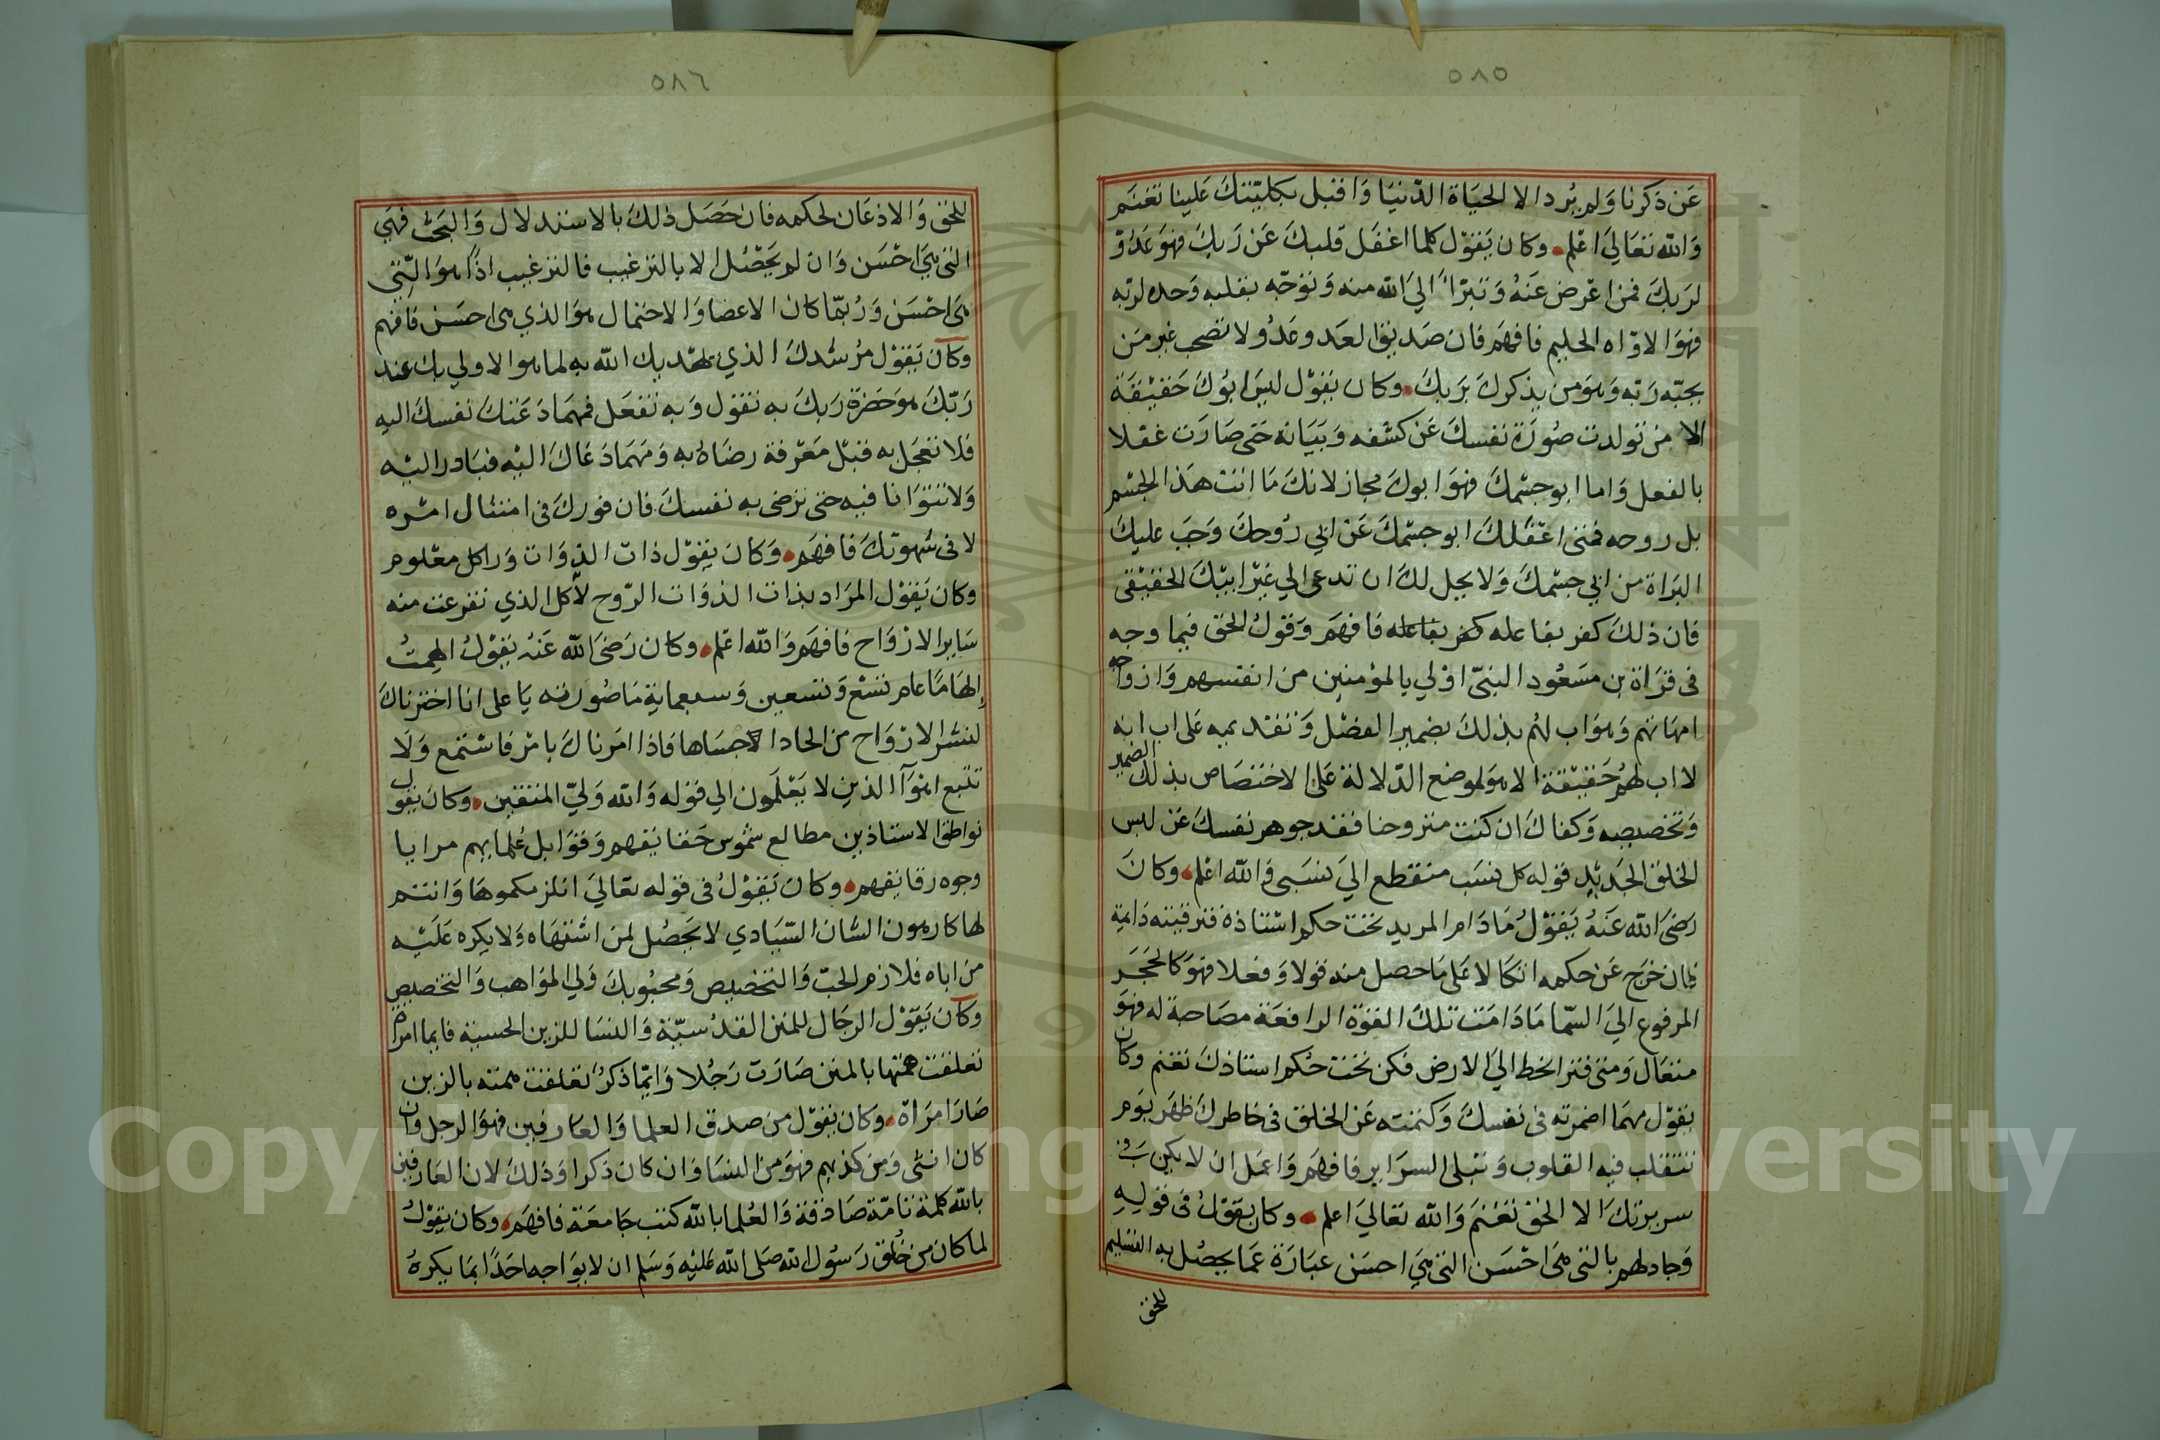 ٥٨٥
عَن ذكرنا وَلم يُرد الا الحيَاة الدّنيَا وَاقبل بكليّتكَ عَلينا تغنَم
وَالله تعَاليَ اعْلم وكان يَقوْل كلما اغفَل قلبكَ عَنْ رَبكَ فهوَ عَدُوّ
لربكَ فمن اعْرض عَنهُ وَتبرّأ اليَ الله منه وَتوَجّه بقلبه وَحده لربّه
فهوَ الاوّاه الحليم فافهَم فان صَديق العَدو عَدُو ولا تصحب غير مَن
يحبّه رَبّه وَهوَ من يذكرك برَبكَ وكان يَقوْل ليسَ ابُوكَ حَقيْقَة
الا من تولدت صُورَة نفسكَ عَن كشفه وَبَيَانه حَتى صَارَت عقلا
بالفعل وَاما ابو جسْمكَ فهوَ ابوكَ مجاز لانكَ مَا انت هَذا الجسْم
بل روحه فمتى اغفَلكَ ابو جسْمكَ عَنْ ابي رُوحكَ وَجَبَ عليكَ
البرَاة من ابي جسْمكَ وَلا يحل لكَ ان تدعى الي غيْر ابيْكَ الحَقيْقى
فان ذلكَ كفر بفاعله كفر بفاعله فافهَم وَقولُ الحَق فيما وجه
فى قرَاة بن مسَعُود النبيّ اوْلي بالمؤمنين من انفسهم وَازواجه
امهَاتهم وَهوَ اب لهُم بذلكَ بضمير الفصْل وَتقديمه عَلى اب انه
لا اب لهُم حَقيْقة الا هوَ لموضع الدّلالة عَلى الاختصَاص بذلك الضمير
وَتخصيصه وَكفاكَ ان كنت متروحنا فقد جوهر نفسكَ عَن لبس
الخلق الجَديْد قوله كل نسَب منقطع اليَ نسَبى وَالله اعْلم وكانَ
رَضىَ الله عَنهُ يَقوْلُ مَا دَام المريد تحت حكم اسْتاذه فترقيته دَايمة
فان خرَج عَن حكمه اتكالا عَلى مَا حصل منه قولا وَفعلا فهوَ كالحجَر
المرفوع اليَ السّما مَا دَامَت تلكَ القوّة الرافعَة مصَاحبَة له فهوَ
متعَال وَمتى فتر انحط اليَ الارض فكن تحت حُكم استاذكَ تغنم وكان
يقوْل مهمَا اضمرته فى نفسكَ وَكتمته عَن الخلق فى خاطركَ ظهَر يوَم
تتقلب فيه القلوب وَتبلى السرَاير فافهَم وَاعمَل ان لا يكن فى
سريرتكَ الا الحَق تغنَم وَالله تعَاليَ اعلم وكان يقوْلُ فى قولهِ
وَجادلهم بالتى هىَ احْسَن التى هيَ احسَن عبَارَة عَمّا يحصُل به التسْليم
للحق
٥٨٦
للحق وَالاذعَان لحكمه فان حَصَل ذلكَ بالاستدلال وَالبَحْث فهيَ
التى هيَ احْسَن وَان لم يحْصُل الا بالترغيب فالترغيب اذًا هوَ الّتي
هيَ احْسَن وَرُبّما كان الاعضا وَالاحتمال هوَ الذي هى احسَن فافهم
وكان يَقوْل مُرْشدكَ الذي يَهْديك الله به لما هو الاولي بك عند
رَبّكَ هوَ حَضرَة رَبكَ به تقول وَبه تفعَل فمهمَا دَعَتكَ نفسكَ اليه
فلا تعْجَل به قبْل مَعْرفة رضَاهُ به وَمَهمَا دَعَاكَ اليْه فبَادر اليْه
وَلا تتوَانا فيه حَتى ترضى به نفسكَ فان فوزكَ فى امتثال امْره
لا فى شهوتكَ فافهَم وَكانَ يَقوْل ذات الذوَات وَراكل معْلوم
وكان يَقوْل المرَاد بذات الذوَات الرّوح لآكل الذي تفرعت منه
سَاير الارْوَاح فافهَم وَالله اعْلم وكان رَضىَ الله عَنهُ يَقوْلُ الهِمتُ
إلهَامًا عام تسْع وَتسعين وَسبعماية مَا صُورته يَا على انا اخترناكَ
لنشر الارْوَاح من الحاد اجسَادها فاذا امَرناكَ بامْر فاستمع وَلَا
تتبع اهْوَآ الذين لا يَعْلَمون الي قوله وَالله وَليّ المتقين وكانَ يقول
نواطق الاستاذين مطالع شموس حَقايقهم وَقوَابل عُلمايهم مرايا
وجوه رقايقهم وكان يَقوْلُ فى قوله تعَاليَ انلزمكموهَا وَانتم
لها كارهون الشان السّيَادي لا يحَصُل لمن اشتهَاه وَلا يكره عَليْه
من اباه فلازم الحبّ وَالتخصيص وَمحبُوبكَ وَلي الموَاهب وَالتخصيص
وكان يَقوْل الرجَال للمنن القدُسيّة وَالنسَا للزين الحسية فايما امراة
تعلقت همّتها بالمنن صَارَت رَجُلا وَايمّا ذكرُ تعلقت همته بالزين
صَار امرَاة وَكان يقوْل من صدق العلما وَالعَارفين فهوَ الرجل وان
كان انثى وَمن كذبهم فهوَ من النسَا وَان كان ذكرا وَذلكَ لان العَارفين
بالله كلمة تامّة صَادقة وَالعُلما بالله كتب جَامعَة فافهَم وكان يقوْلُ
لما كان من خُلق رَسُول الله صَلى الله عَليْه وَسَلم ان لا يوَاجه احَدًا بمَا يكرهُ
Copyright © King Saud University